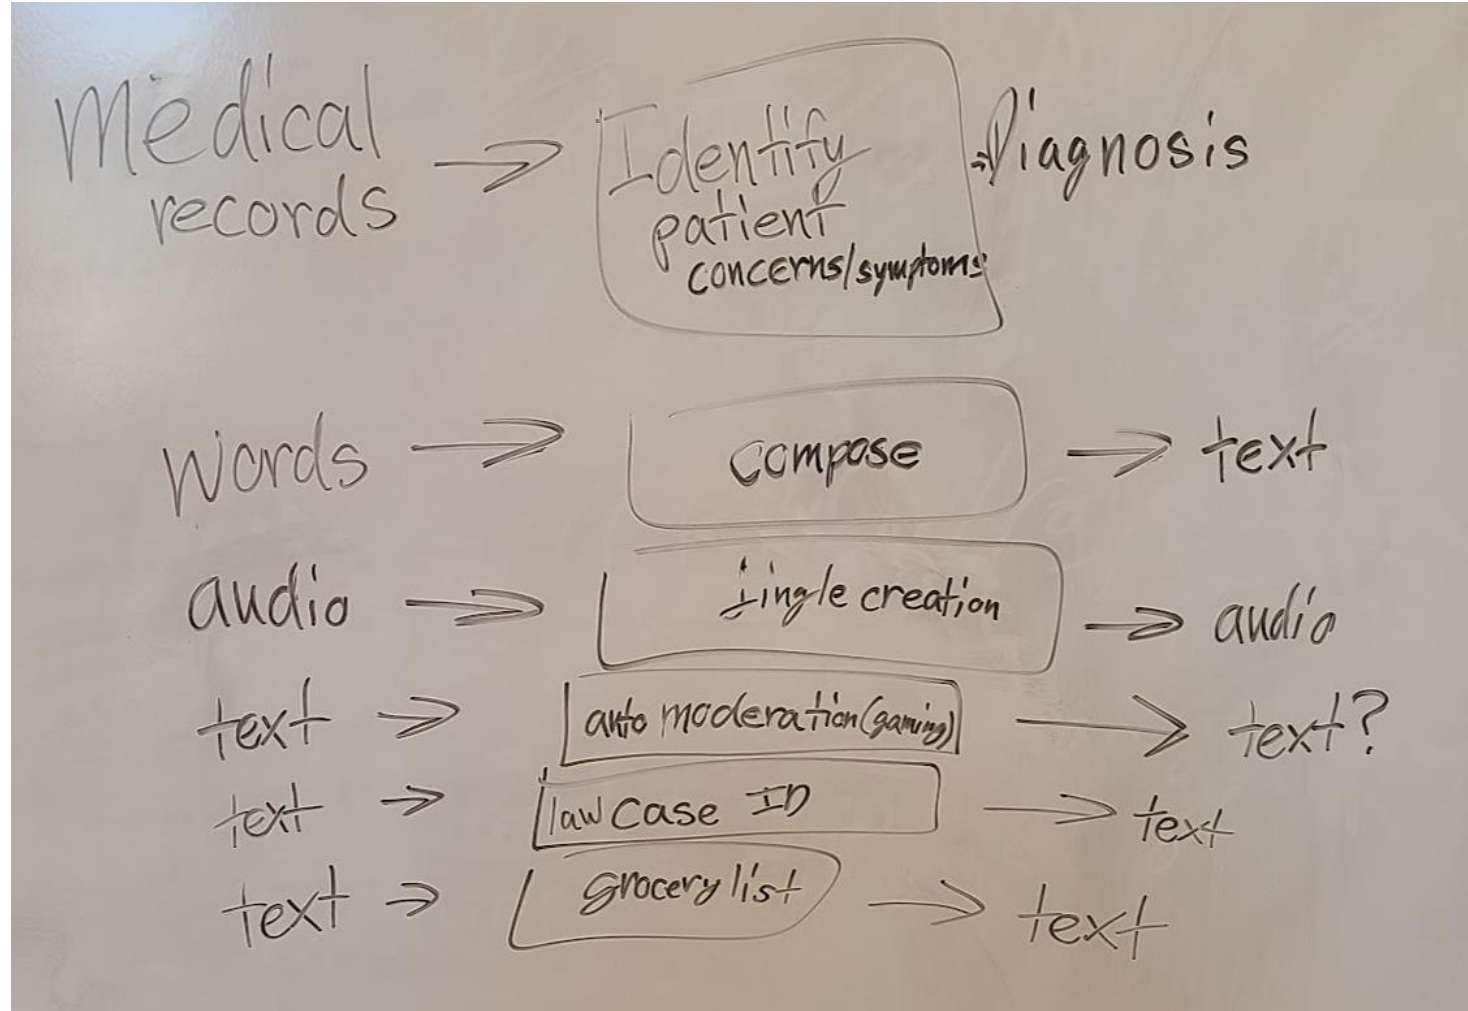 Medical
records → Identify
patient
concerns/symptoms → Diagnosis
words → compose → text
audio → jingle creation → audio
text → auto moderation (gaming) → text?
text → law case ID → text
text → grocery list → text